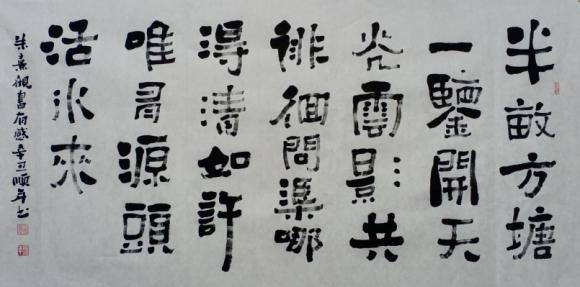 半畝方塘
一鑒開天
光雲影共
徘徊問渠哪
得清如許
唯有源頭
活水來
朱熹觀書有感辛丑順书